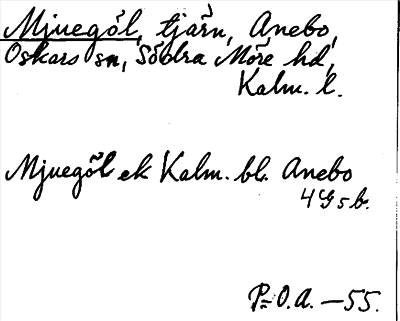 Mjuegöl, tjärn, Anebo,
Oskars sn, Södra Möre hd,
Kalm. l.
Mjuegöl ek Kalm. bl. Anebo
4G5b.
P-O.A. -55.